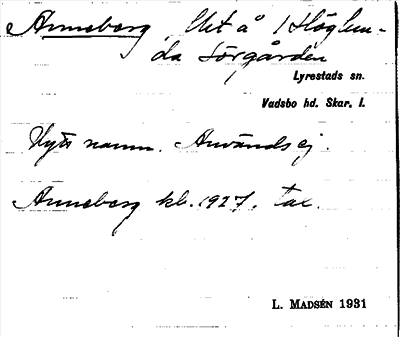 Anneberg, Ut å 1 Höglun-
da Sörgården
Lyrestads sn.
Vadsbo hd. Skar. l.
Nytt namn. Används ej.
Anneberg kb. 1927. Tax.
L. MADSÉN 1931